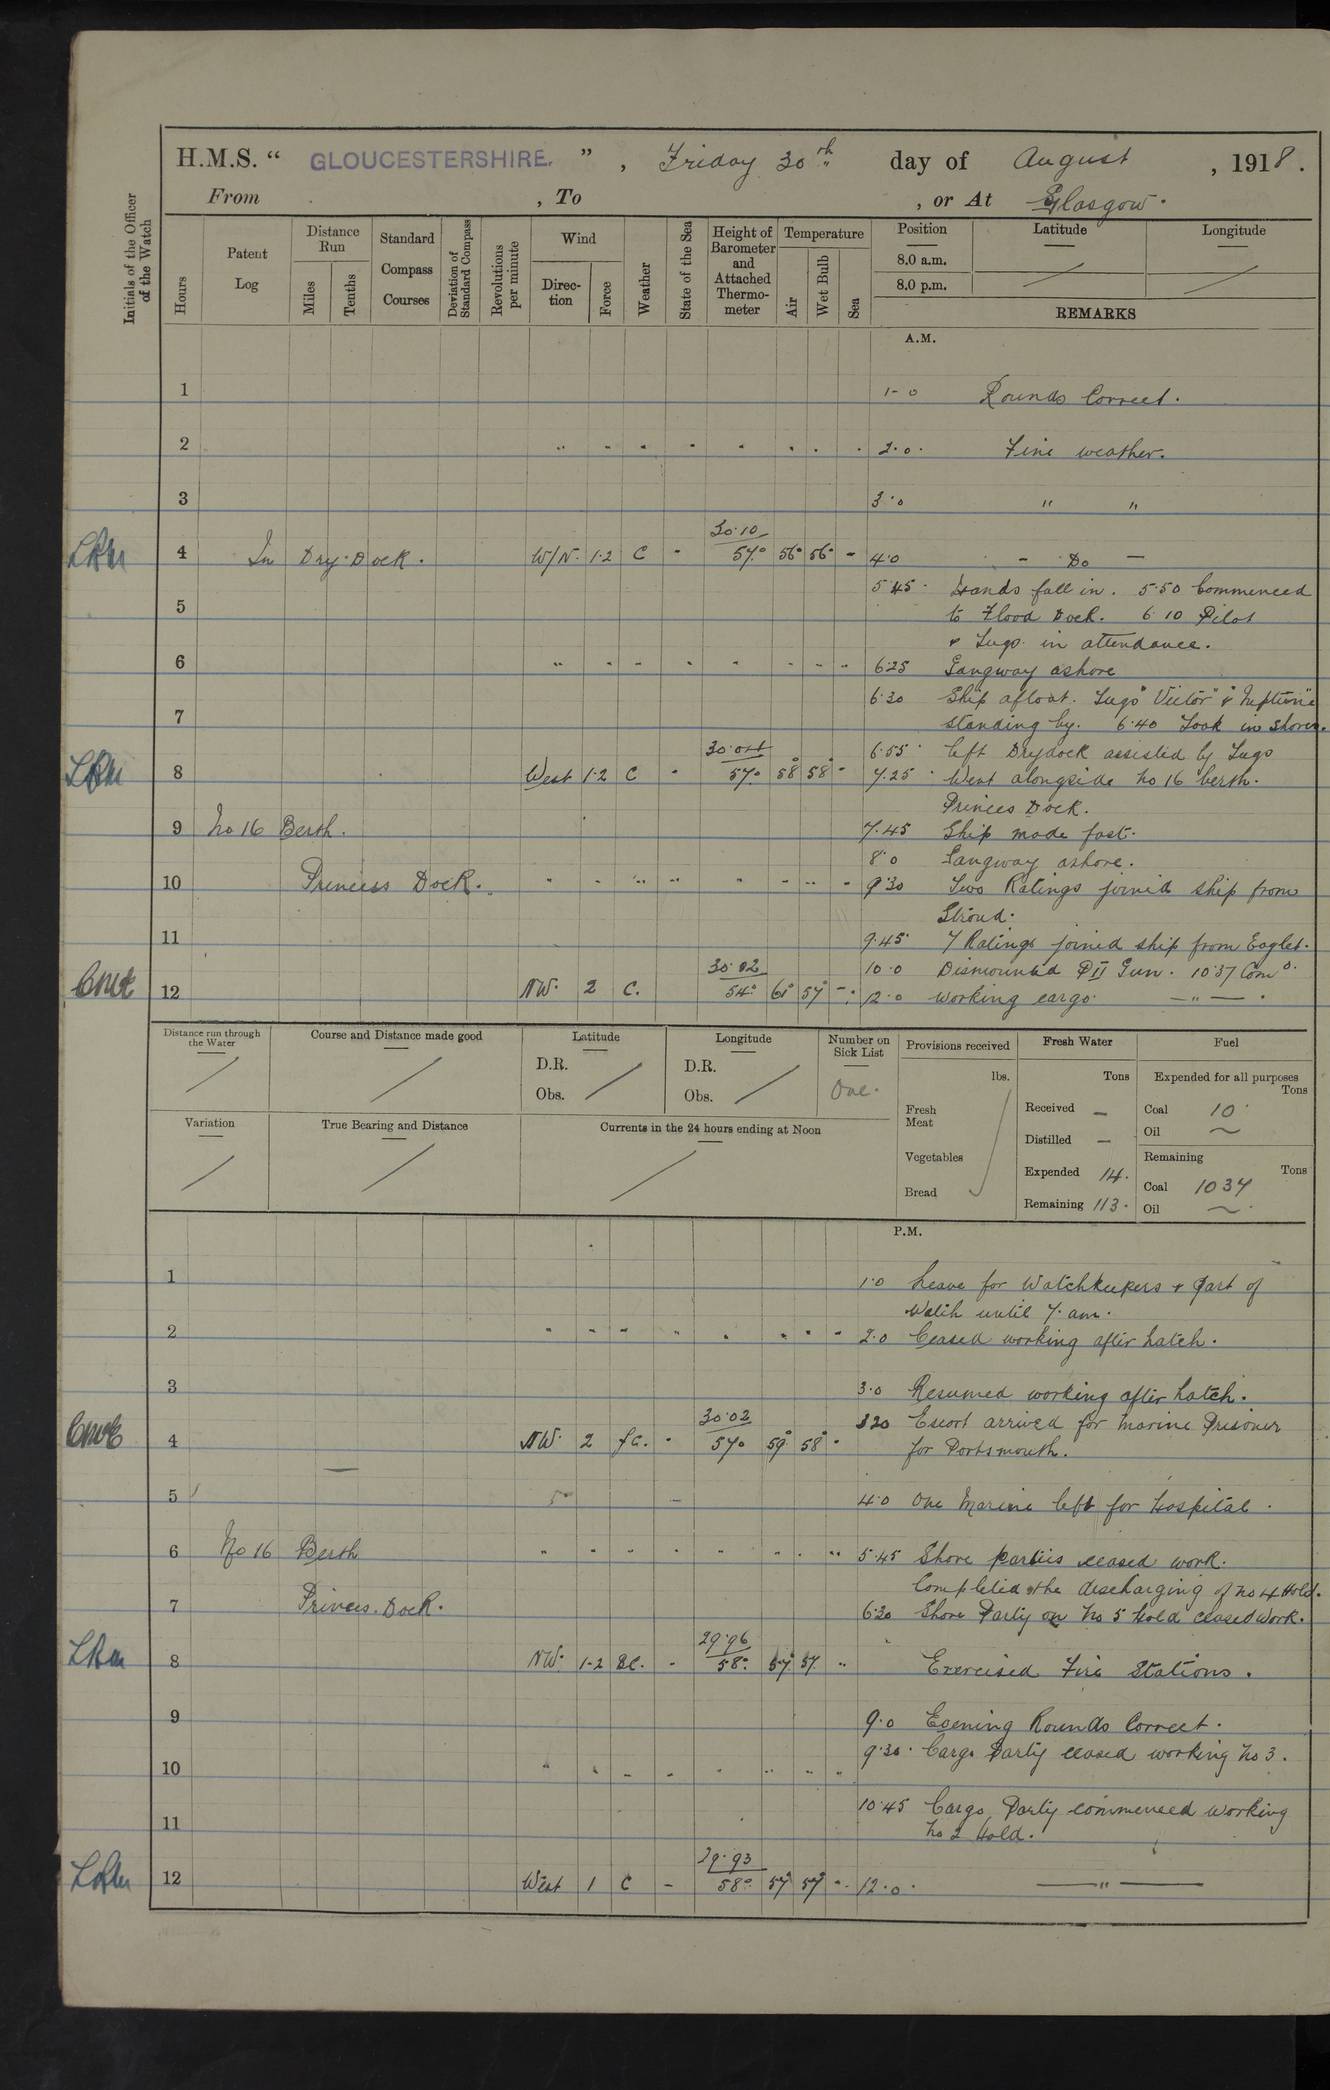 H.M.S. " GLOUCESTERSHIRE. ", Friday 30th day of August, 1918.
From , To , or At Glasgow.
Initials of the Officer of the Watch
Hours
Patent Log
Distance Run
Miles
Tenths
Standard Compass Courses
Deviation of Standard Compass
Revolutions per minute
Wind
Direction
Force
Weather
State of the Sea
Height of Barometer and Attached Thermometer
Temperature
Air
Wet Bulb
Sea
Position
8.0 a.m.
8.0 p.m.
Latitude
Longitude
REMARKS
A.M.
1 1-0 Rounds Correct.
2 2.0. Fine weather.
3 3.0 " "
30.10
4 In Dry Dock. W/N. 1.2 C - 57° 56° 56° - 4.0 - Do -
5.45. Hands fall in. 5.50 Commenced
5 to Flood Dock. 6.10 Pilot
& Tugs in attendance.
6 6.25 Gangway ashore
6.30 Ship afloat. Tugs "Victor" & "Neptune"
7 standing by. 6.40 Took in shores.
6.55. left Drydock assisted by Tugs
8 West 1.2 C - 57° 58° 58° - 7.25. Went alongside No 16 berth.
Princes Dock.
9 No 16 Berth. 7.45 Ship made fast.
8.0 Gangway ashore.
10 Princess Dock. 9.30 Two Ratings joined ship from
Stroud.
11 9.45. 7 Ratings joined ship from Eaglet.
30.02 10.0 Dismounted P II Gun. 10.37 Comd.
12 NW. 2 C. 54° 61° 57° - 12.0 working cargo. - " - .
Distance run through the Water
Course and Distance made good
Latitude
D.R.
Obs.
Longitude
D.R.
Obs.
Number on Sick List
One.
Provisions received
lbs.
Fresh Meat
Vegetables
Bread
Fresh Water
Tons
Received -
Distilled -
Expended 14.
Remaining 113.
Fuel
Expended for all purposes
Tons
Coal 10.
Oil ~
Remaining
Tons
Coal 1037
Oil ~
Variation
True Bearing and Distance
Currents in the 24 hours ending at Noon
P.M.
1 1.0 Leave for Watchkeepers & Part of
Watch until 7. am.
2 2.0 Ceased working after hatch.
3 3.0 Resumed working after hatch.
30.02 3.20 Escort arrived for Marine Prisoner
4 NW. 2 fc. - 57° 59° 58° - for Portsmouth.
5 4.0 One Marine left for Hospital.
6 No 16 Berth 5.45 Shore parties ceased work.
Completed the discharging of No 4 Hold.
7 Princes. Dock. 6.30 Shore Party on No 5 Hold ceased work.
29.96
8 NW. 1-2 BC. - 58° 57° 57. " Exercised Fire Stations.
9 9.0 Evening Rounds Correct.
9.30. Cargo Party ceased working No 3.
10
10.45 Cargo Party commenced working
11 No 2 Hold.
29.93
12 West 1 C - 58° 57° 57° - 12.0. - " -